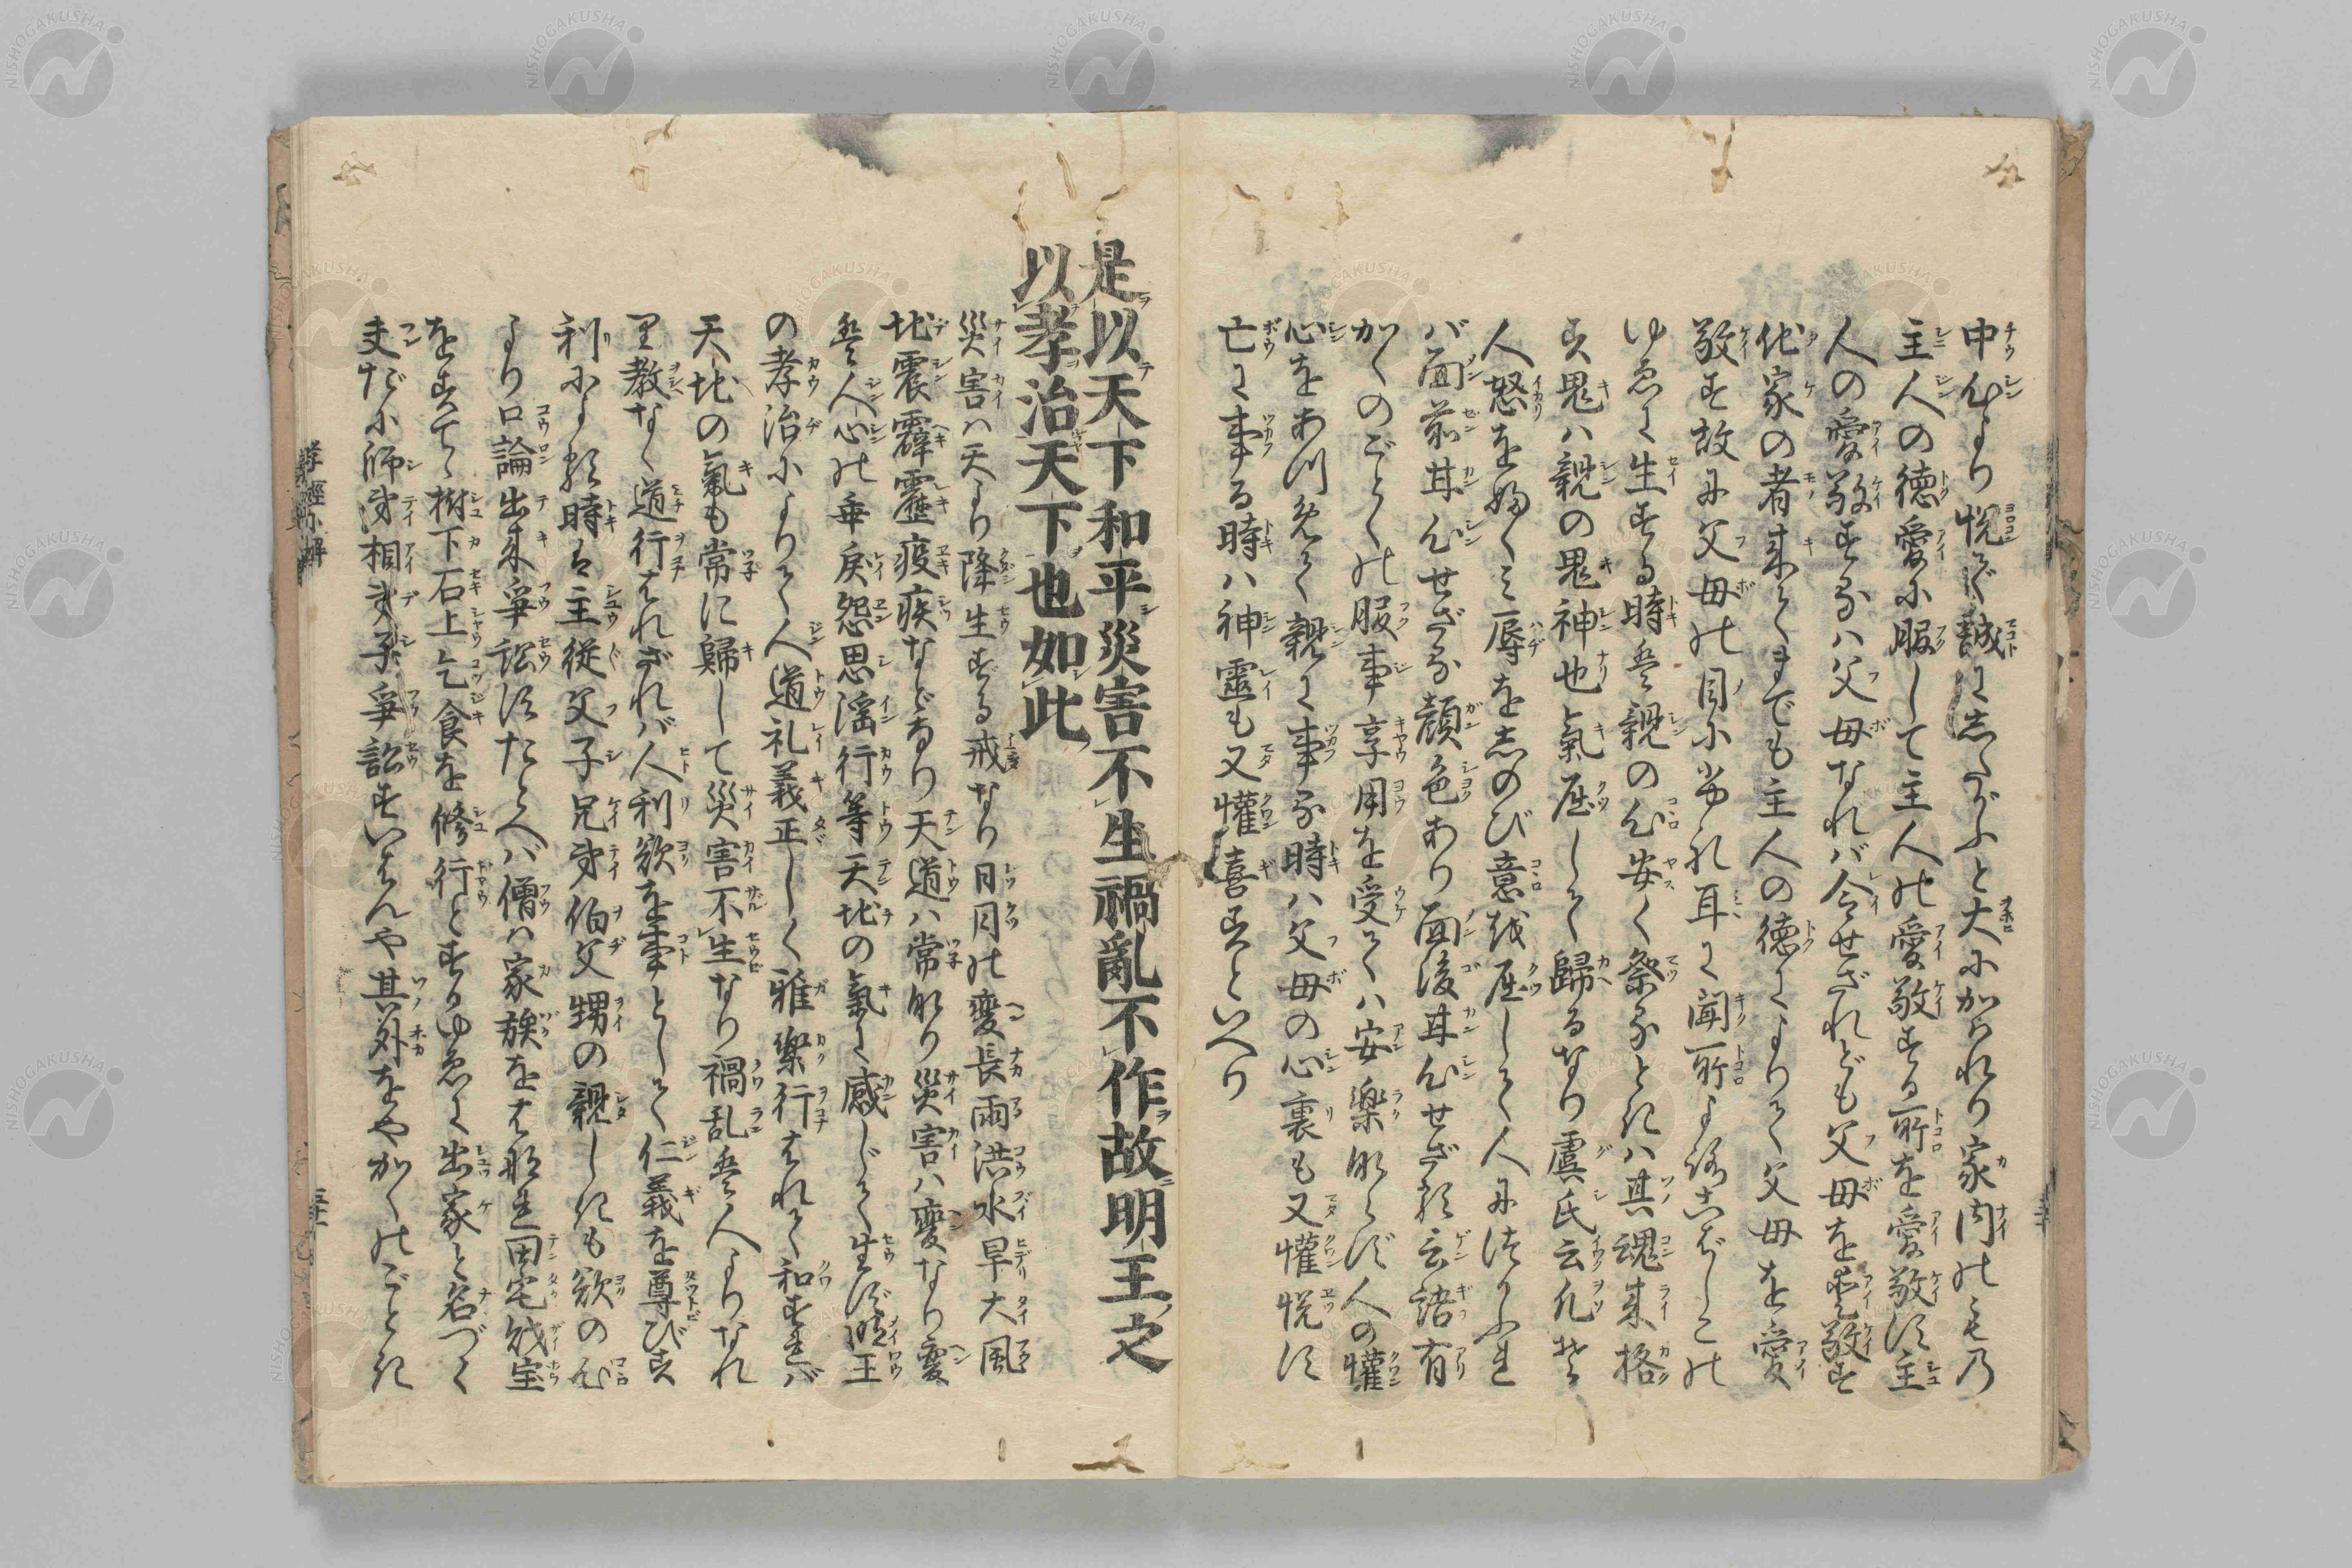 中心より悦で誠にしたがふと大にかはれり家内のもの
主人の徳愛に服して主人の愛敬する所を愛敬す主
人の愛敬する父母なれバ令せざれども父母を愛敬す
他家の者来てまでも主人の徳によりて父母を愛
敬す故に父母の目に当れ耳に聞所よろこばしこの
ゆゑに生する時は親の心安く祭るときハ其魂来格
す鬼ハ親の鬼神也氣屈して歸るなり虞氏云凡そ
人怒をふくミ辱をしのび意を屈して人につかふれ
バ面前甘心せざる顔色あり面後甘心せざる言語有
かくのごとくの服事享用を受てハ安楽ならず人の懽
心をあつめて親に事る時ハ父母の心裏も又懽悦す
亡に事る時ハ神靈も又懽喜すといへり
是以天下和平災害不生禍亂不作故明王之
以孝治天下也如此
災害ハ天より降生ずる戒なり日月の變長雨洪水旱大風
地震霹靂疫疾などなり天道ハ常なり災害ハ變なり變
は人心の乖戻怨思淫行等天地の氣に感じて生ず明王
の孝治によりて人道礼義正しく雅楽行はれて和すれバ
天地の氣も常に歸して災害不生なり禍乱は人よりなれ
り教なく道行はれざれバ人利欲を事として仁義を尊びず
利による時は主従父子兄弟伯父甥の親しきも欲の心
より口論出来爭訟すたとへバ僧ハ家族をはなれ田宅財宝
をすてゝ樹下石上乞食を修行とするゆゑに出家と名づく
夫だに師弟相弟子爭訟すいはんや其外をやかくのごとき
孝經小解